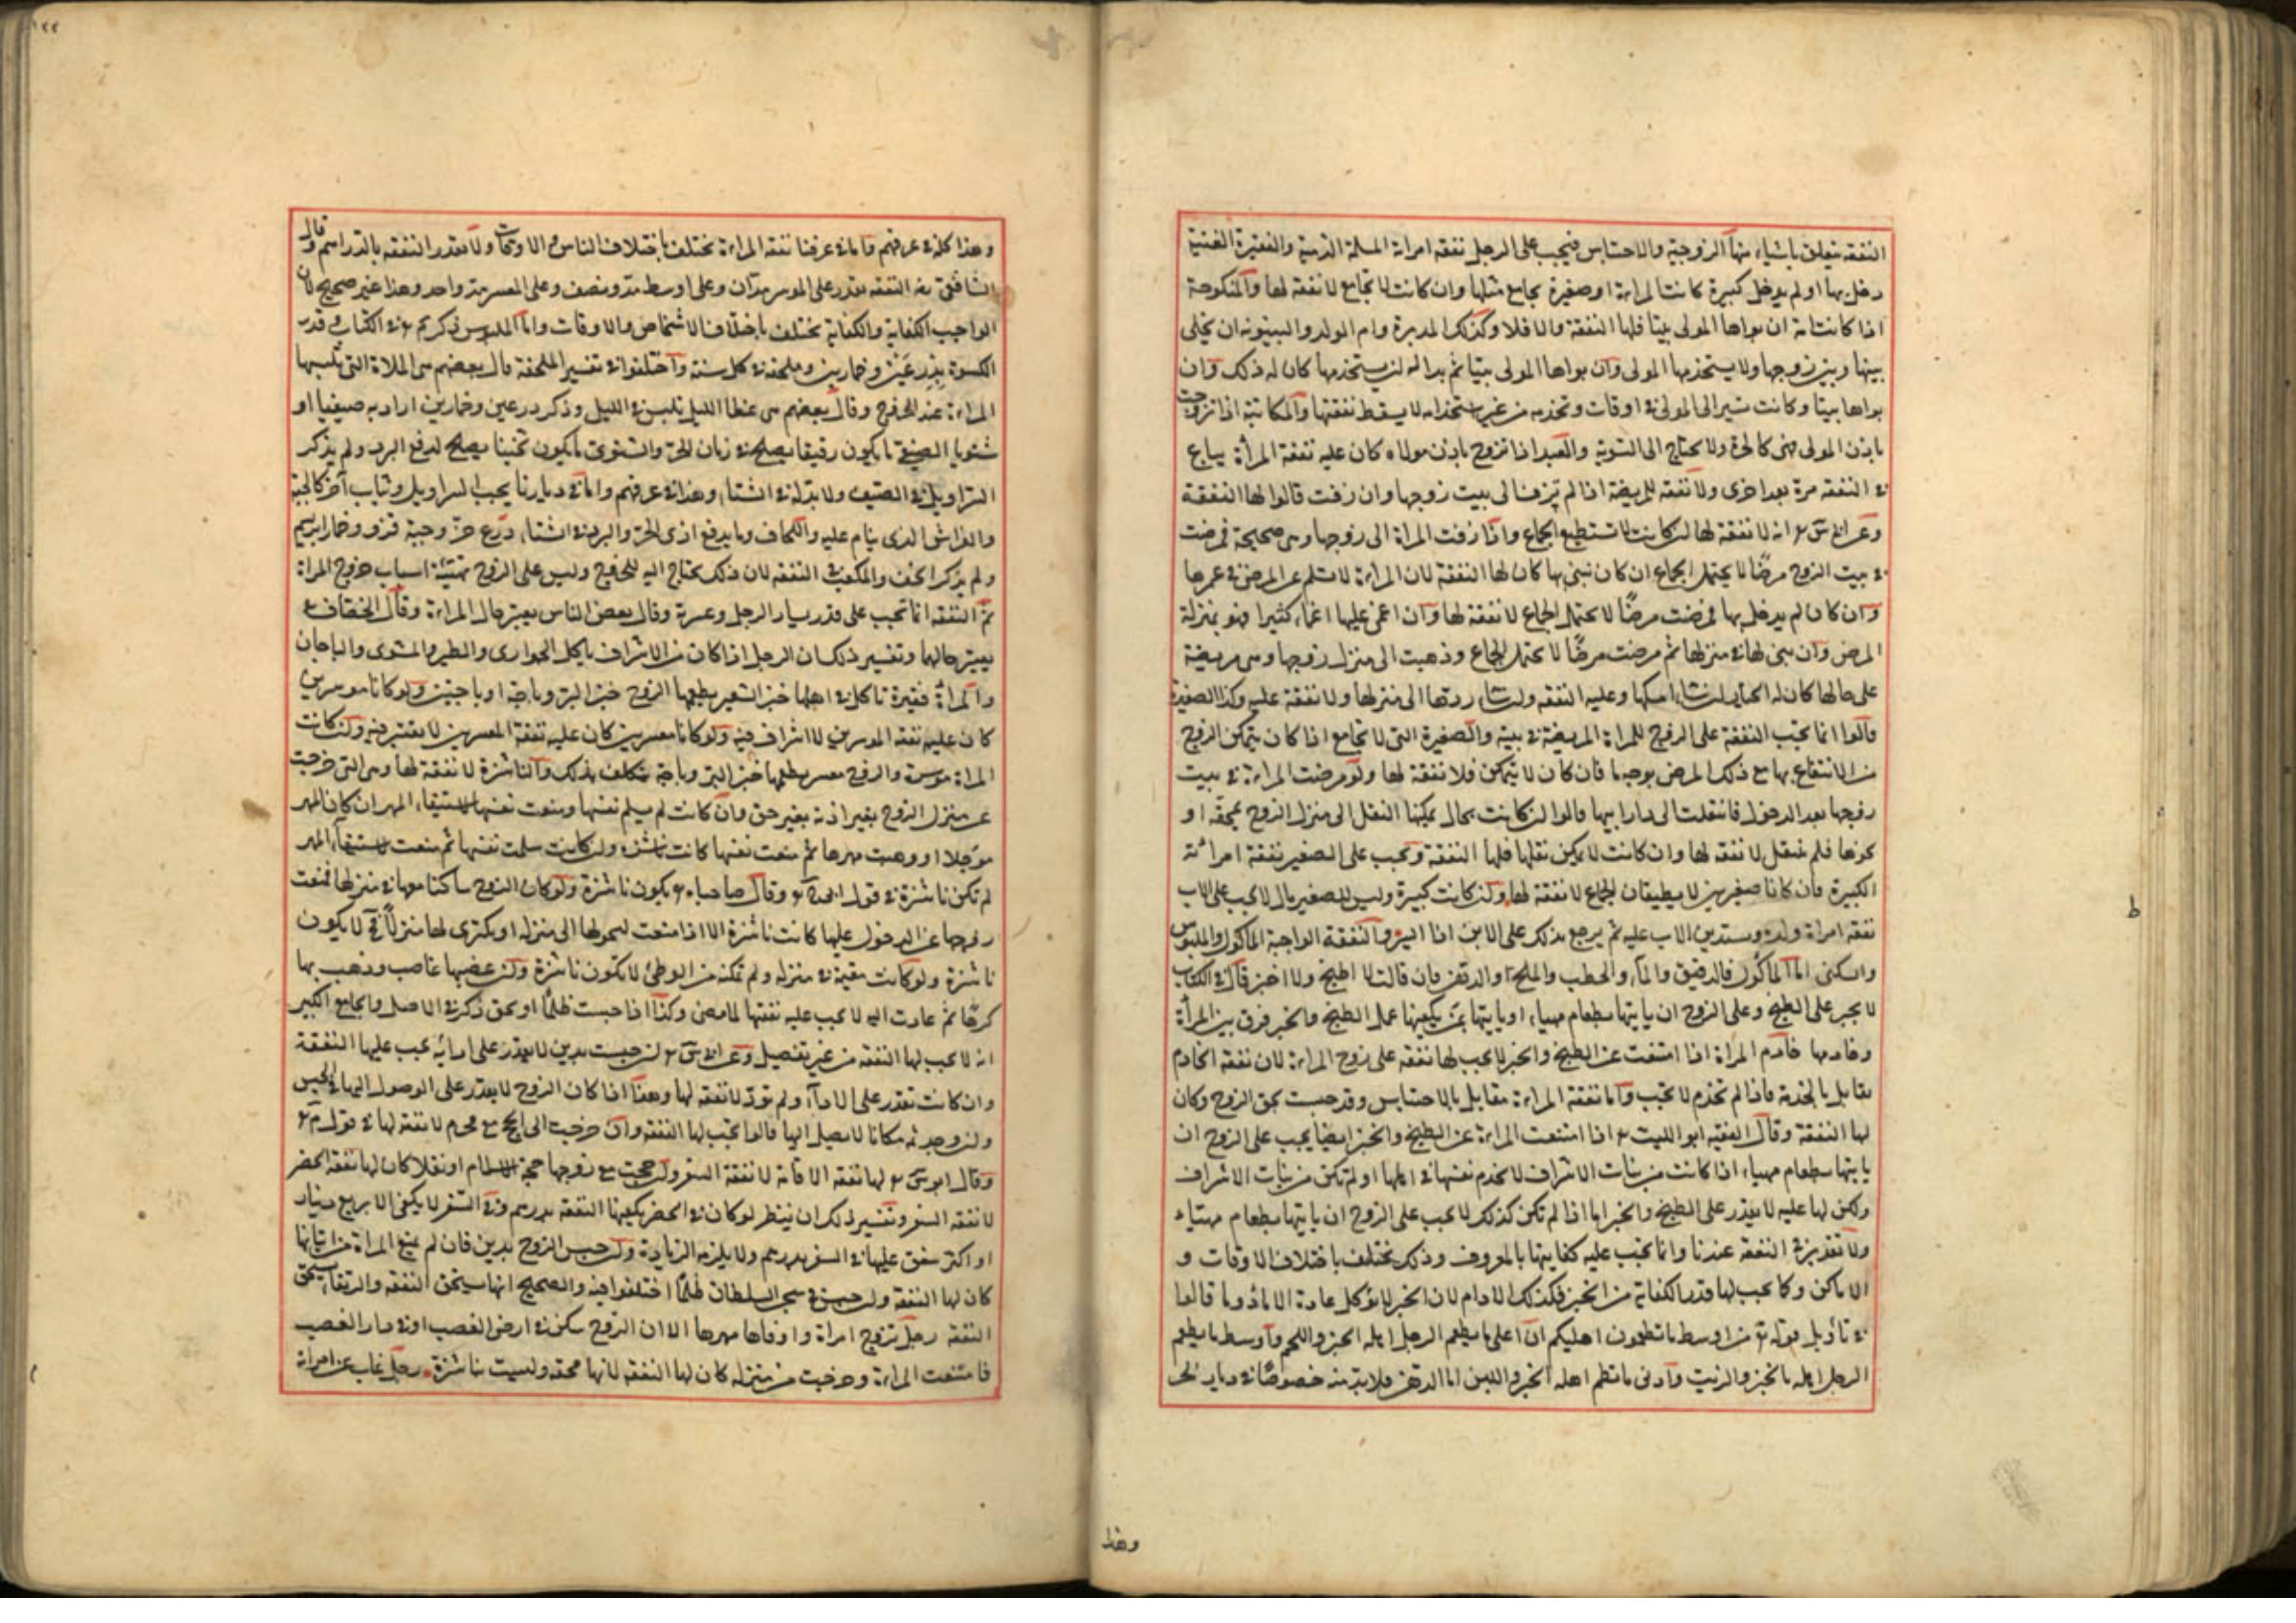 النفقة تتعلق باشياء منها الزوجية والاحتباس فيجب على الرجل نفقة امراته المسلمة الذمية والفقيرة الغنية
دخل بها او لم يدخل كبيرة كانت المراءة او صغيرة يجامع مثلها وان كانت لا تجامع لا نفقة لها والمنكوحة
اذا كانت امة ان بواها المولى بيتا فلها النفقة والا فلا وكذلك المدبرة وام الولد والبينونة ان يخلى
بينها وبين زوجها ولا يستخدمها المولى وان بواها المولى بيتا ثم بدا له ان يستخدمها كان له ذلك وان
بواها بيتا وكانت تسير الى المولى في اوقات وتخدمه من غير استخدام لا يسقط نفقتها والمكاتبة اذا تزوجت
باذن المولى فهي كالحرة ولا يحتاج الى التبوية والعبد اذا تزوج باذن مولاه كان عليه نفقة المرأة يباع
في النفقة مرة بعد اخرى ولا نفقة للمريضة اذا لم تزف الى بيت زوجها وان زفت قالوا لها النفقة
وعن ابي س انه لا نفقة لها ان كانت لا تستطيع الجماع واذا زفت المراة الى زوجها وهي صحيحة فمرضت
في بيت الزوج مرضًا لا يحتمل الجماع ان كان بنى بها كان لها النفقة لان المراءة لا تسلم عن المرض في عمرها
وان كان لم يدخل بها فمرضت مرضًا لا يحتمل الجماع لا نفقة لها وان اغمى عليها اغماء كثيرا فهو بمنزلة
المرض وان بنى بها في منزلها ثم مرضت مرضًا لا يحتمل الجماع وذهبت الى منزل زوجها وهي مريضة
على حالها كان له الخيار ان شاء امسكها وعليه النفقة وان شاء ردها الى منزلها ولا نفقة عليه وكذا الصغيرة
قالوا انما تجب النفقة على الزوج للمراة المريضة في بيته والصغيرة التي لا تجامع اذا كان يتمكن الزوج
من الانتفاع بها مع ذلك المرض بوجه ما فان كان لا يتمكن فلا نفقة لها ولو مرضت المراءة في بيت
زوجها بعد الدخول فانتقلت الى دار ابيها قالوا ان كانت بحال يمكنها النقل الى منزل الزوج بمحفة او
نحوها فلم تنتقل لا نفقة لها وان كانت لا يمكن نقلها فلها النفقة وتجب على الصغير نفقة امرائته
الكبيرة فان كانا صغيرين لا يطيقان الجماع لا نفقة لها وان كانت كبيرة وليس للصغير مال لا يجب على الاب
نفقة امراة ولده ويستدين الاب عليه ثم يرجع بذلك على الابن اذا ايسر والنفقة الواجبة الماكول والملبوس
والسكنى اما الماكول فالدقيق والماء والحطب والملح والدهن فان قالت لا اطبخ ولا اخبز قال في الكتاب
لا يجبر على الطبخ وعلى الزوج ان ياتيها بطعام مهياء او ياتيها بمن يكفيها عمل الطبخ والخبز فرق بين المرأة
وخادمها خادم المراة اذا امتنعت عن الطبخ والخبز لا يجب لها نفقة على زوج المراءة لان نفقة الخادم
مقابل بالخدمة فاذا لم تخدم لا تجب واما نفقة المراءة مقابل بالاحتباس وقد حبست بحق الزوج وكان
لها النفقة وقال الفقيه ابو الليث اذا امتنعت المراءة عن الطبخ والخبز ايضا يجب على الزوج ان
ياتيها بطعام مهياء اذا كانت من بنات الاشراف لا تخدم نفسها في اهلها او لم تكن من بنات الاشراف
ولكن لها علة لا يقدر على الطبخ والخبز اما اذا لم تكن كذلك لا يجب على الزوج ان ياتيها بطعام مهياء
ولا تقدير في النفقة عندنا وانما تجب عليه كفايتها بالمعروف وذلك يختلف باختلاف الاوقات و
الاماكن وكما يجب لها قدر الكفاية من الخبز فكذلك الادام لان الخبز لا يؤكل عادة الا مادوما قالوا
في تأويل قوله من اوسط ما تطعمون اهليكم ان اعلى ما يطعم الرجل اهله الخبز واللحم واوسط ما يطعم
الرجل اهله الخبز والزيت وادنى ما يطعم اهله الخبز واللبن اما الدهن فلا بد منه خصوصًا في ديار الحر
وهذا
وهذا كله في عرفهم فاما في عرفنا نفقة المراءة تختلف باختلاف الناس والاوقات ولا تقدر النفقة بالدراهم وقال
الشافعي النفقة تقدر على الموسر مدان وعلى اوسط مد ونصف وعلى المعسر مد واحد وهذا غير صحيح لان
الواجب الكفاية والكفاية تختلف باختلاف الاشخاص والاوقات واما الملبوس ذكر في الكتاب وقدر
الكسوة بدرعين وخمارين وملحفة في كل سنة واختلفوا في تفسير الملحفة قال بعضهم هي الملاة التي تلبسها
المراءة عند الخروج وقال بعضهم هي غطا الليل تلبس في الليل وذكر درعين وخمارين اراد به صيفيا او
شتويا الصيفي ما يكون رقيقا يصلح في زمان الحر والشتوي ما يكون ثخينا يصلح لدفع البرد ولم يذكر
السراويل في الصيف ولا بد له في الشتاء وهذا في عرفهم واما في ديارنا يجب السراويل وثياب آخر كالجبة
والفراش الذي ينام عليه واللحاف وما يدفع اذى الحر والبرد في الشتاء درع خز وجبة قز وخمار ابريسم
ولم يذكر الخف والمكعب في النفقة لان ذلك يحتاج اليه للخروج وليس على الزوج تهيئة اسباب خروج المراة
ثم النفقة انما تجب على قدر يسار الرجل وعسرة وقال بعض الناس يعتبر حال المراءة وقال الخصاف
يعتبر حالهما وتفسير ذلك ان الرجل اذا كان من الاشراف يأكل الحوارى والطير والمشوى والباجات
والمراة فقيرة تاكل في اهلها خبز الشعير يطعمها الزوج خبز البر وباجة او باجتين ولو كانا موسرين
كان عليه نفقة الموسرين لا اسراف فيه ولو كانا معسرين كان عليه نفقة المعسرين لا تقتير فيه وان كانت
المراة موسرة والزوج معسر يطعمها خبز البر وباجة يتكلف بذلك والناشزة لا نفقة لها وهي التي خرجت
عن منزل الزوج بغير اذنه بغير حق وان كانت لم يسلم نفسها ومنعت نفسها لاستيفاء المهر ان كان المهر
مؤجلا او وهبت مهرها ثم منعت نفسها كانت ناشزة وان كانت سلمت نفسها ثم منعت لاستيفاء المهر
لم تكن ناشزة في قول وقال صاحباه يكون ناشزة ولو كان الزوج ساكنا معها في منزلها فمنعت
زوجها عن الدخول عليها كانت ناشزة الا اذا منعت ليحولها الى منزله او يكترى لها منزلًا لا يكون
ناشزة ولو كانت مقيمة في منزله ولم تمكنه من الوطئ لا تكون ناشزة وان غصبها غاصب وذهب بها
كرهًا ثم عادت اليه لا يجب عليه نفقتها لما مضى وكذا اذا حبست ظلمًا او بحق ذكر في الاصل والجامع الكبير
انه لا يجب لها النفقة من غير تفصيل وعن ابي س ان حبست بدين لا يقدر على ادائه يجب عليها النفقة
وان كانت تقدر على الاداء ولم تؤد لا نفقة لها وهذا اذا كان الزوج لا يقدر على الوصول اليها في الحبس
وان وجد ثمه مكانا لا يصل اليها قالوا تجب لها النفقة وان خرجت الى الحج مع محرم لا نفقة لها في قول
وقال ابو س لها نفقة الاقامة لا نفقة السفر وان حجت مع زوجها حجة الاسلام او نفلا كان لها نفقة الحضر
لا نفقة السفر وتفسير ذلك ان ينظر لو كان في الحضر يكفيها النفقة بدرهم وفي السفر لا يكفى الا بربع دينار
او اكثر ينفق عليها في السفر بدرهم ولا يلزمه الزيادة وان حبس الزوج بدين فان لم يمنع المراة من اتيانها
كان لها النفقة وان حبس في سجن السلطان ظلمًا اختلفوا فيه والصحيح انها يستحق النفقة والرتقاء يستحق
النفقة رجل تزوج امراة واوفاها مهرها الا ان الزوج سكن في ارض الغصب او في دار الغصب
فامتنعت المراءة وخرجت من منزله كان لها النفقة لانها محقة وليست بناشزة رجل غاب عن امراته